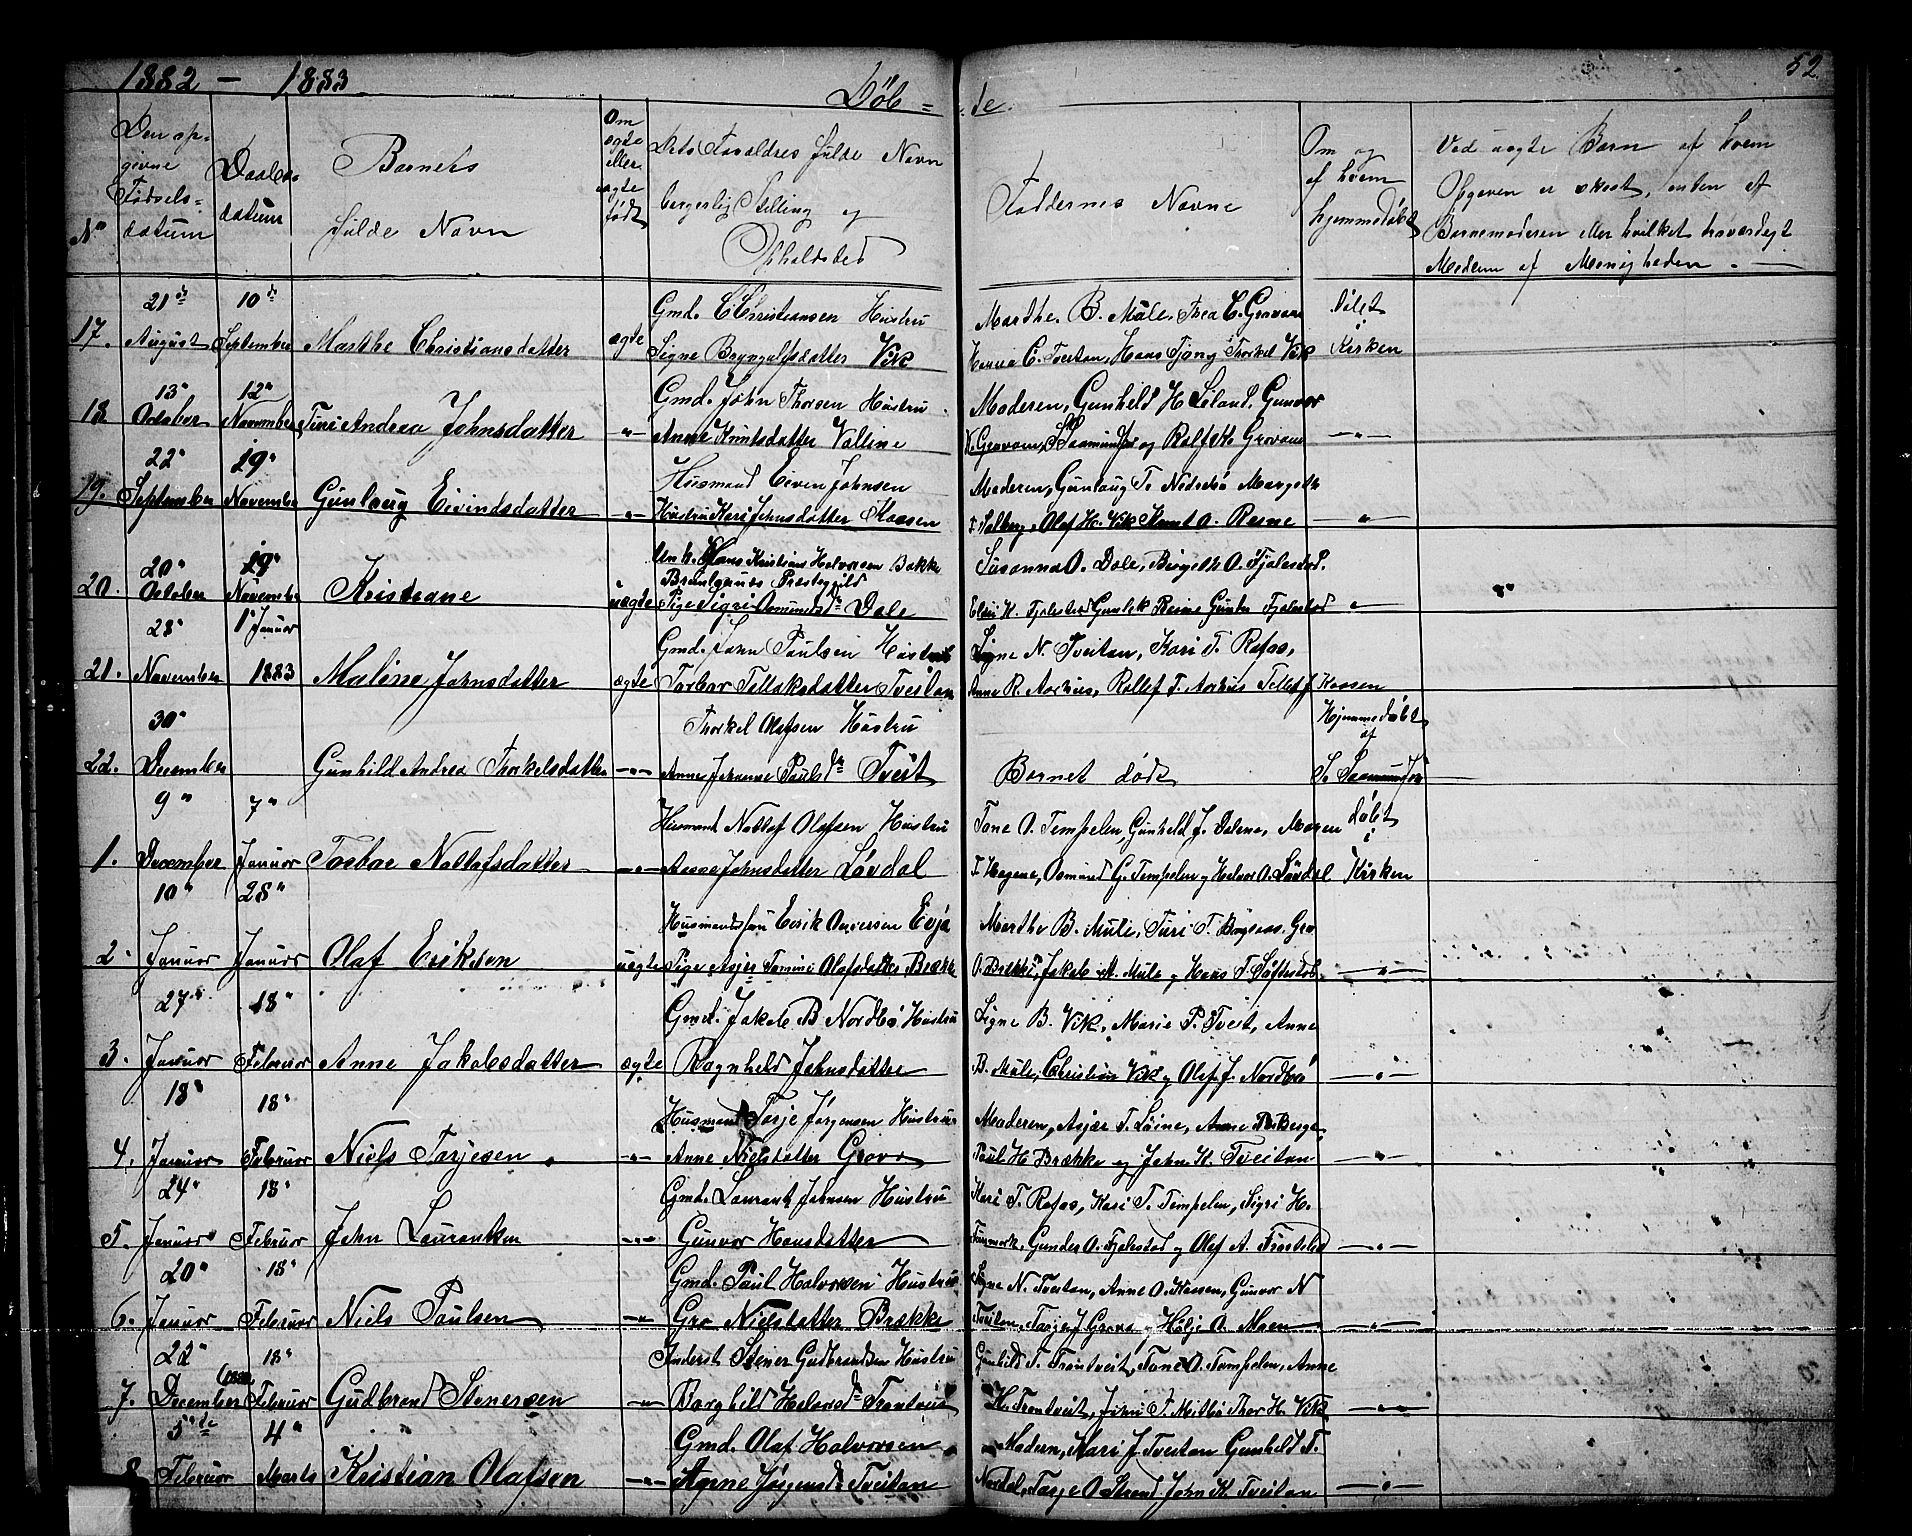 1882 - 1883
Døb = de.
52
No
Den op-
givne
Fødsels-
datum
Daabs-
datum
Barnets
fulde Navn
Om
ægte
eller
uægte
født
Dets Forældres fulde Navn
borgerlig Stilling og
Opholdsted
Faddernes Navne
Om og
af hvem
hjemmedøbt
Ved uægte Børn af hvem
Opgaven er skeet, enten af
Barnemoderen eller hvilket troværdigt
Medlem af Menigheden.
17. 21de August 10de September Marthe Christiansdatter ægte
Gmd. C Christiansen Hustru
Signe Bryngulfsdatter Vik
Marthe. B. Mule, Thea C. Grovum
C. Tveitan, Hans Tjong Thorkel Vik
Døbt i Kirken
18. 13" October 12" November Turi Andrea Johnsdatter "
Gmd. John Thorsen Hustru
Anne Knutsdatter Valline
Moderen, Gunhild H Løland, Gunvor
N. Grovum, Saamundsen og Rolf Grovum — " —
19. 22" September 19" November Gunlaug Eivindsdatter — " —
Husmand Eiven Johnsen
Hustru Kari Johnsdatter Kaasen
Moderen, Gunlaug T. Nedrebø Margeth
T. Solberg, Olaf H. Vik Knut O. Resne — " —
20. 20" October 19" November Kristiane uægte
Unk. Hans Kristian Halvorsen Bakke
Brunlanæs Prestegjeld
Pige Sigri Osmundsdr Dale
Susanna O. Dale, Birgeth O. Fjalestad.
Elen H. Fjalestad Gunlek Resne Gunder Fjalestad "
21. 28" November 1" Januar 1883 Maline Johnsdatter ægte
Gmd. John Paulsen Hustru
Torbor Tellefsdatter Tveitan
Signe N. Tveitan, Kari T. Rafos,
Anne R. Aarhus, Rollef T. Aarhus Tellef J. Kaasen
22. 30" December Gunhild Andrea Thorkelsdatter — " —
Thorkel Olafsen Hustru
Anne Johanne Paulsdr Tveit
Barnet dødt
Hjemmedøbt
af
S. Saamundsen
1. 9" December 7" Januar Torbor Nottofsdatter — " —
Husmand Nottof Olafsen Hustru
Aasne Johnsdatter Løvdal
Tone O. Tempelen, Gunhild J. Dalene, Maren
T. Hagene, Osmund G. Tempelen og Halvor O. Løvdal
døbt i Kirken
2. 10" Januar 28" Januar Olaf Eriksen uægte
Husmandssøn Eerik Andersen Evja
Pige Asjer Tomine Olafsdatter Brække
Marthe B. Mule, Turi T. Bogaas. Gro
O. Brække, Jakob A. Mule og Hans T. Søftestad — " —
3. 27" Januar 18" Februar Anne Jakobsdatter ægte
Gmd. Jakob B Nordbø Hustru
Ragnhild Johnsdatter
Signe B. Vik, Marie P. Tveit, Anne
B. Mule, Christian Vik og Olaf J. Nordbø — " —
4. 18" Januar 18" Februar Niels Tarjesen — " —
Husmand Tarje Jørgensen Hustru
Anne Nielsdatter Grova
Moderen, Asjær T. Løine, Anne Berge,
Paul H. Brække og John K. Tveitan — " —
5. 24" Januar 18" Februar John Laurantsen — " —
Gmd. Laurants Johnsen Hustru
Gunvor Hansdatter
Kari T. Rafos, Kari T. Tempelen, Sigri H.
Gunder O. Fjalestad og Olaf A. — " —
6. 20" Januar 18" Februar Niels Paulsen — " —
Gmd. Paul Halvorsen Hustru
Gro Nielsdatter Brække
Signe N. Tveitan, Anne O. Kaasen, Gunvor N
Tveitan, Tarje J Grova og Hølje A. Moen — " —
7. 22" December 1882 18" Februar Gudbrand Stenersen — " —
Inderst Stener Gudbrandsen Hustru
Borghild Halvorsdr Trontveit
Gunhild T. Trontveit, Tone O. Tempelen, Anne
H. Trontveit, John T. Mitbø Thor H. Vik — " —
8. 5te Februar 4" Marts Kristian Olafsen — " —
Gmd. Olaf Halvorsen
Anne Jørgensdr Tveitan
Modern, Kari J Tveitan Gunhild T.
Nordal, Tarje O. Strand John K. Tveitan — " —